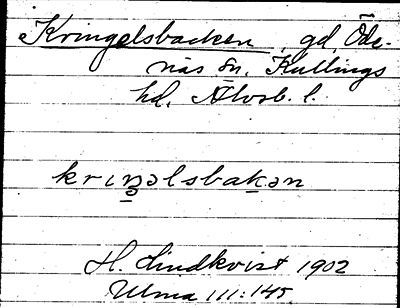 Kringelsbacken, gd, Öde-
näs sn. Kullings
hd. Älvsb. l.
krıŋ̲əlsbak̲ən
H. Lindkvist 1902
Ulma 111:145